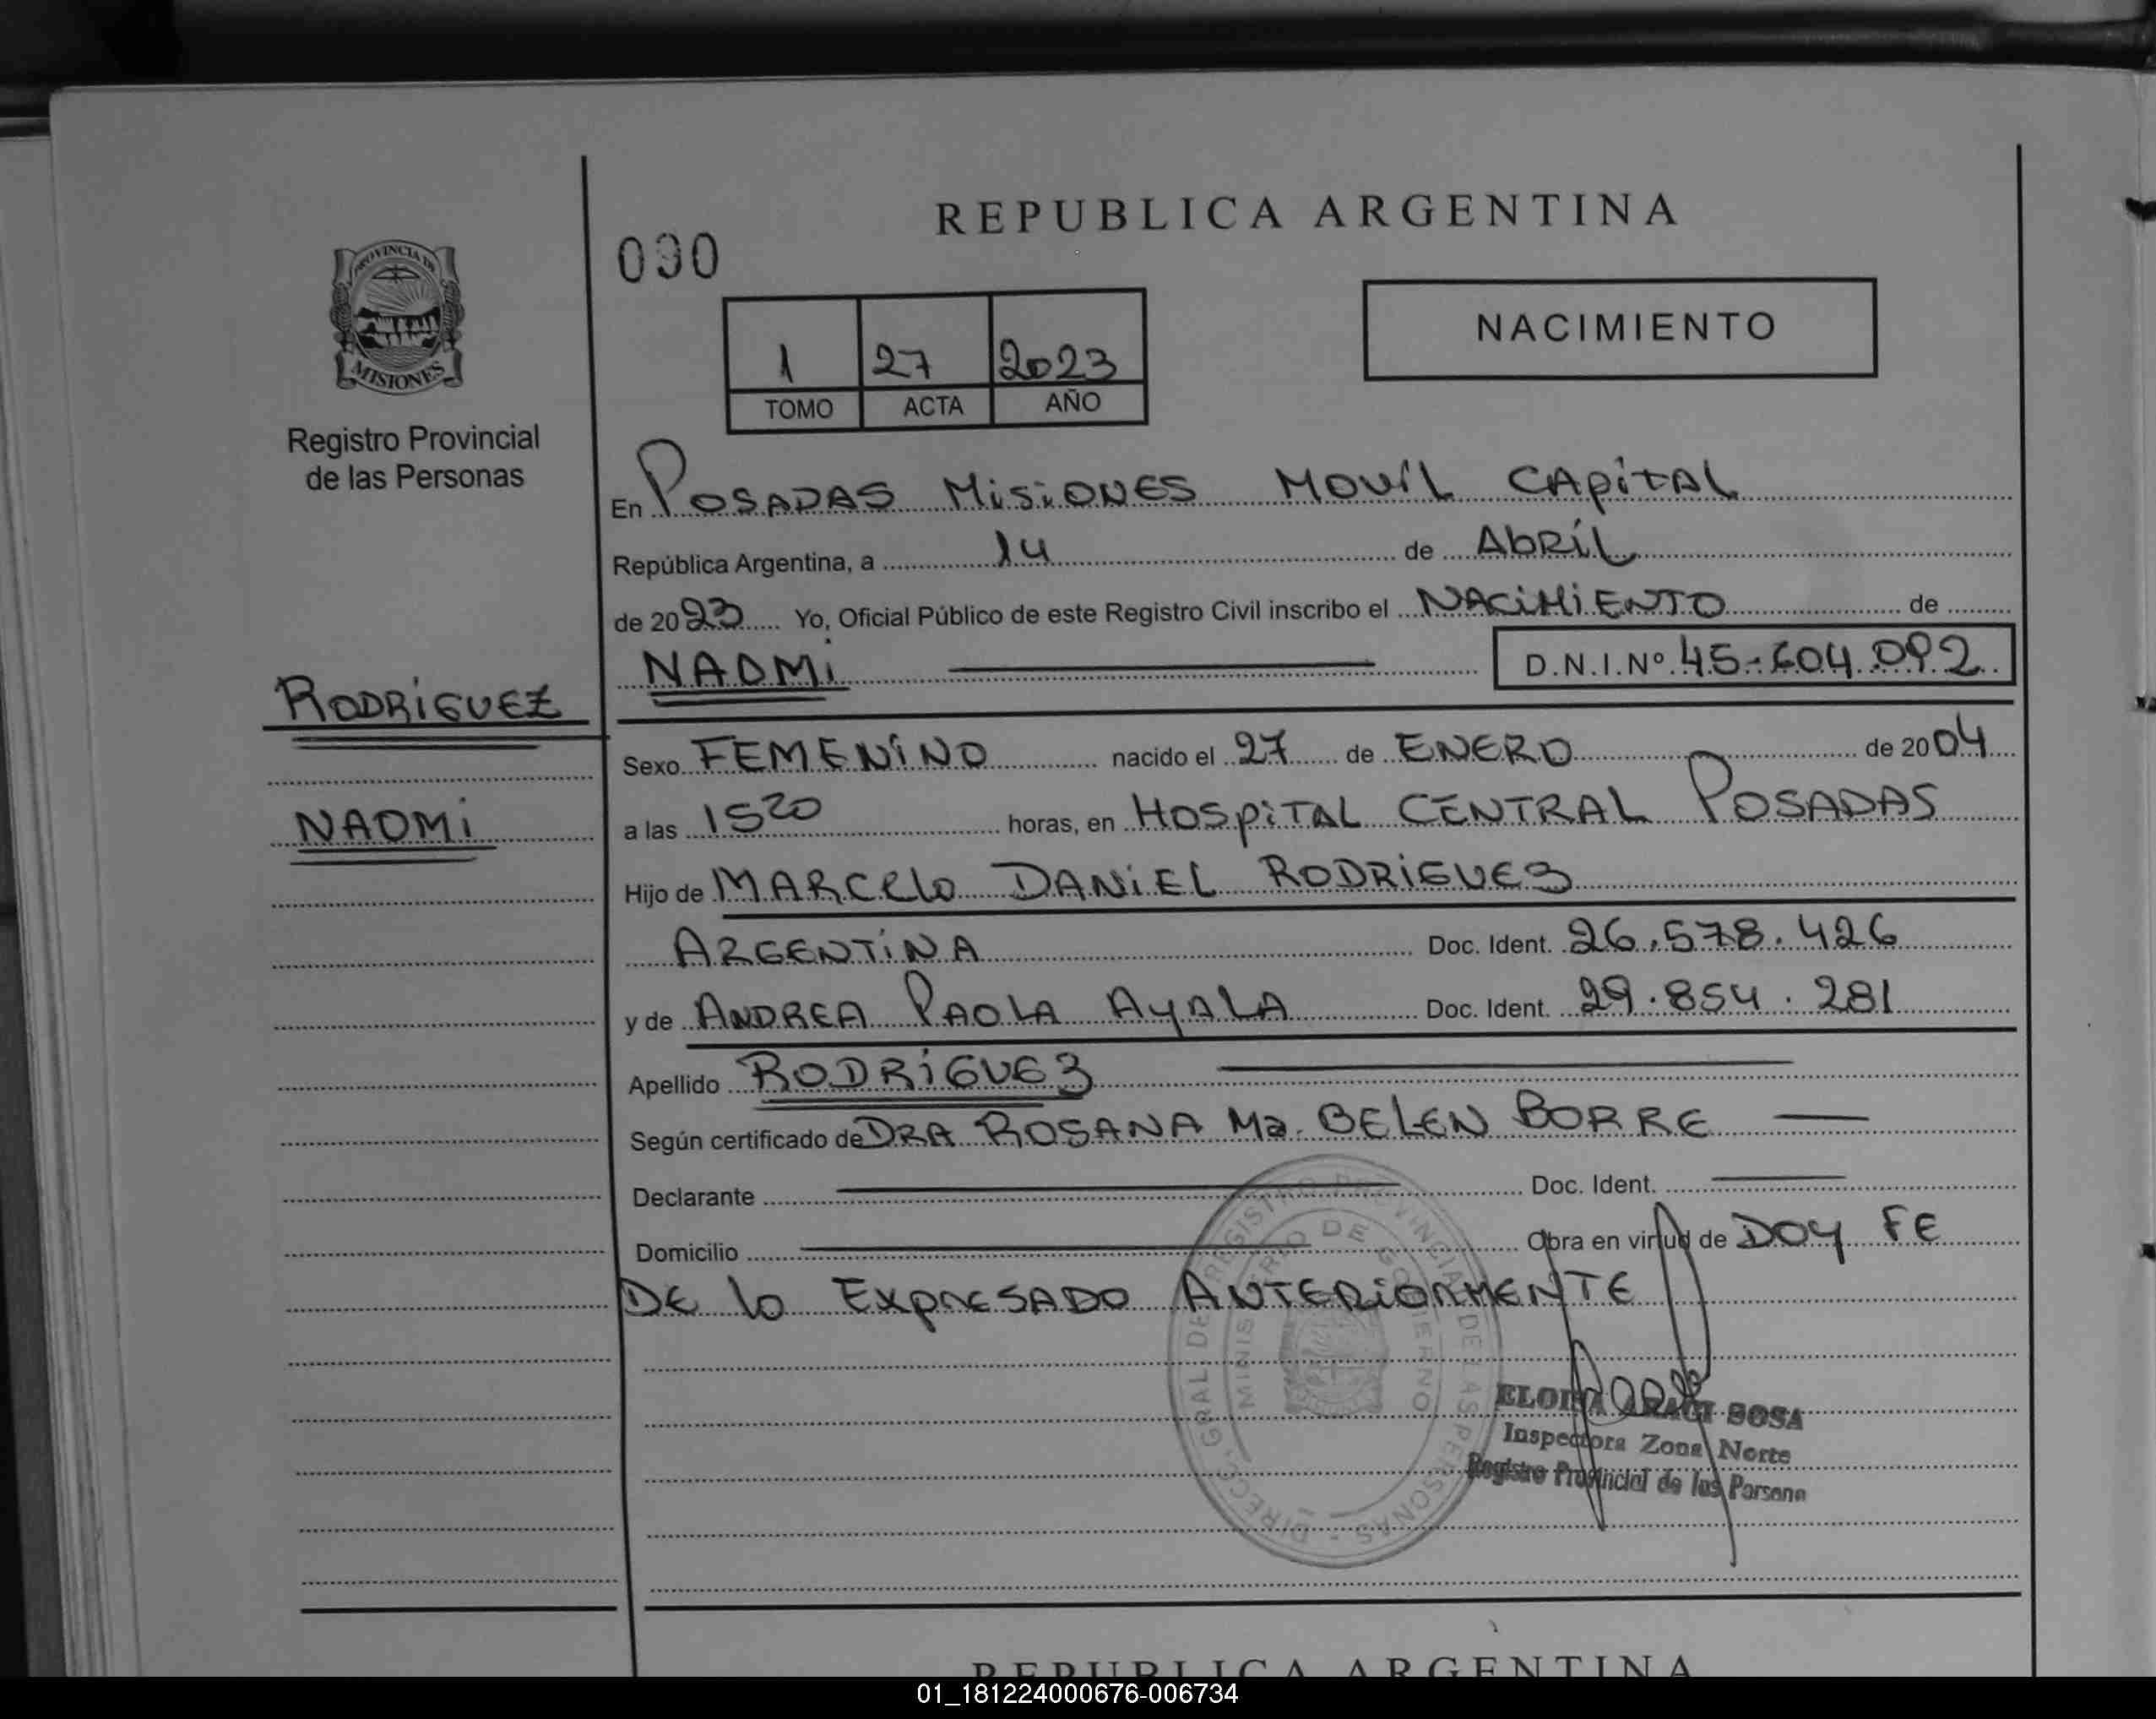 REPUBLICA ARGENTINA
PROVINCIA DE
MISIONES
Registro Provincial
de las Personas
NACIMIENTO
1 27 2023
TOMO ACTA AÑO
En POSADAS MISiONES MOViL CAPiTAL
República Argentina, a 14 de AbRiL
de 2023 Yo, Oficial Público de este Registro Civil inscribo el NACiMiENTO de
NAOMi D.N.I.Nº 45-604.092
RODRiGUEZ
Sexo FEMENiNO nacido el 27 de ENERO de 2004
NAOMi
a las 15 20 horas, en HOSPiTAL CENTRAL POSADAS
Hijo de MARCElo DANiEL RODRiGUEZ
ARGENTiNA Doc. Ident. 26.578.426
y de ANDREA PAOLA AyALA Doc. Ident. 29.854.281
Apellido RODRiGUEZ
Según certificado de DRA ROSANA Ma. BELEN BORRE
Declarante Doc. Ident.
Domicilio Obra en virtud de DOY FE
DE lo EXPRESADO ANTERiORMENTE
DIRECC. GRAL. DE REGISTRO PROVINCIAL DE LAS PERSONAS
MINISTERIO DE GOBIERNO
SOSA
Inspectora Zona Norte
Registro Provincial de las Persona
REPUBLICA ARGENTINA
01_181224000676-006734